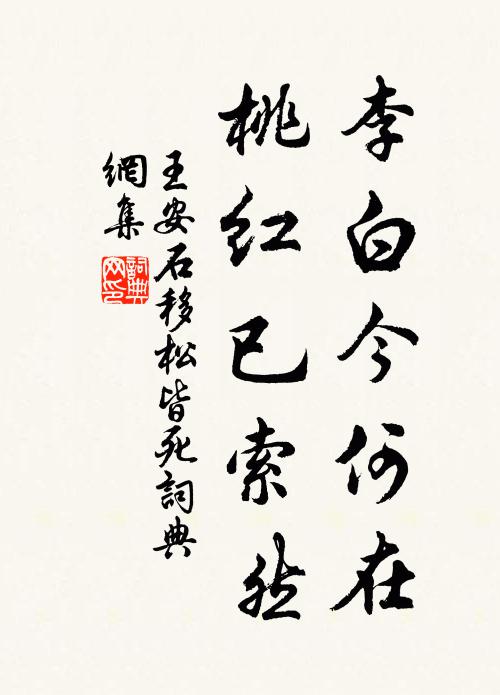 李白今何在
桃红已索然
王安石移松皆死詞典
網集
詞典
网印